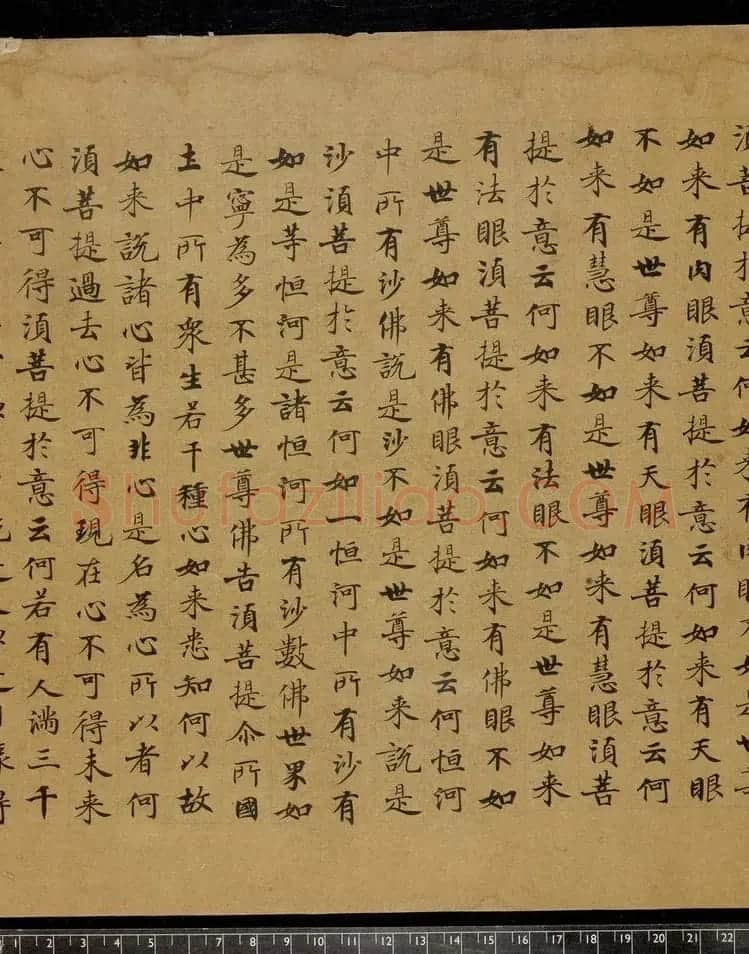 須菩提於意云何如来有肉眼不如是世尊
如来有肉眼須菩提於意云何如来有天眼
不如是世尊如来有天眼須菩提於意云何
如来有慧眼不如是世尊如来有慧眼須菩
提於意云何如来有法眼不如是世尊如来
有法眼須菩提於意云何如来有佛眼不如
是世尊如来有佛眼須菩提於意云何恒河
中所有沙佛說是沙不如是世尊如来說是
沙須菩提於意云何如一恒河中所有沙有
如是等恒河是諸恒河所有沙數佛世界如
是寧為多不甚多世尊佛告須菩提尒所國
土中所有衆生若干種心如来悉知何以故
如来說諸心皆為非心是名為心所以者何
須菩提過去心不可得現在心不可得未来
心不可得須菩提於意云何若有人滿三千
Shufaziliao.COM
1 2 3 4 5 6 7 8 9 10 11 12 13 14 15 16 17 18 19 20 21 22